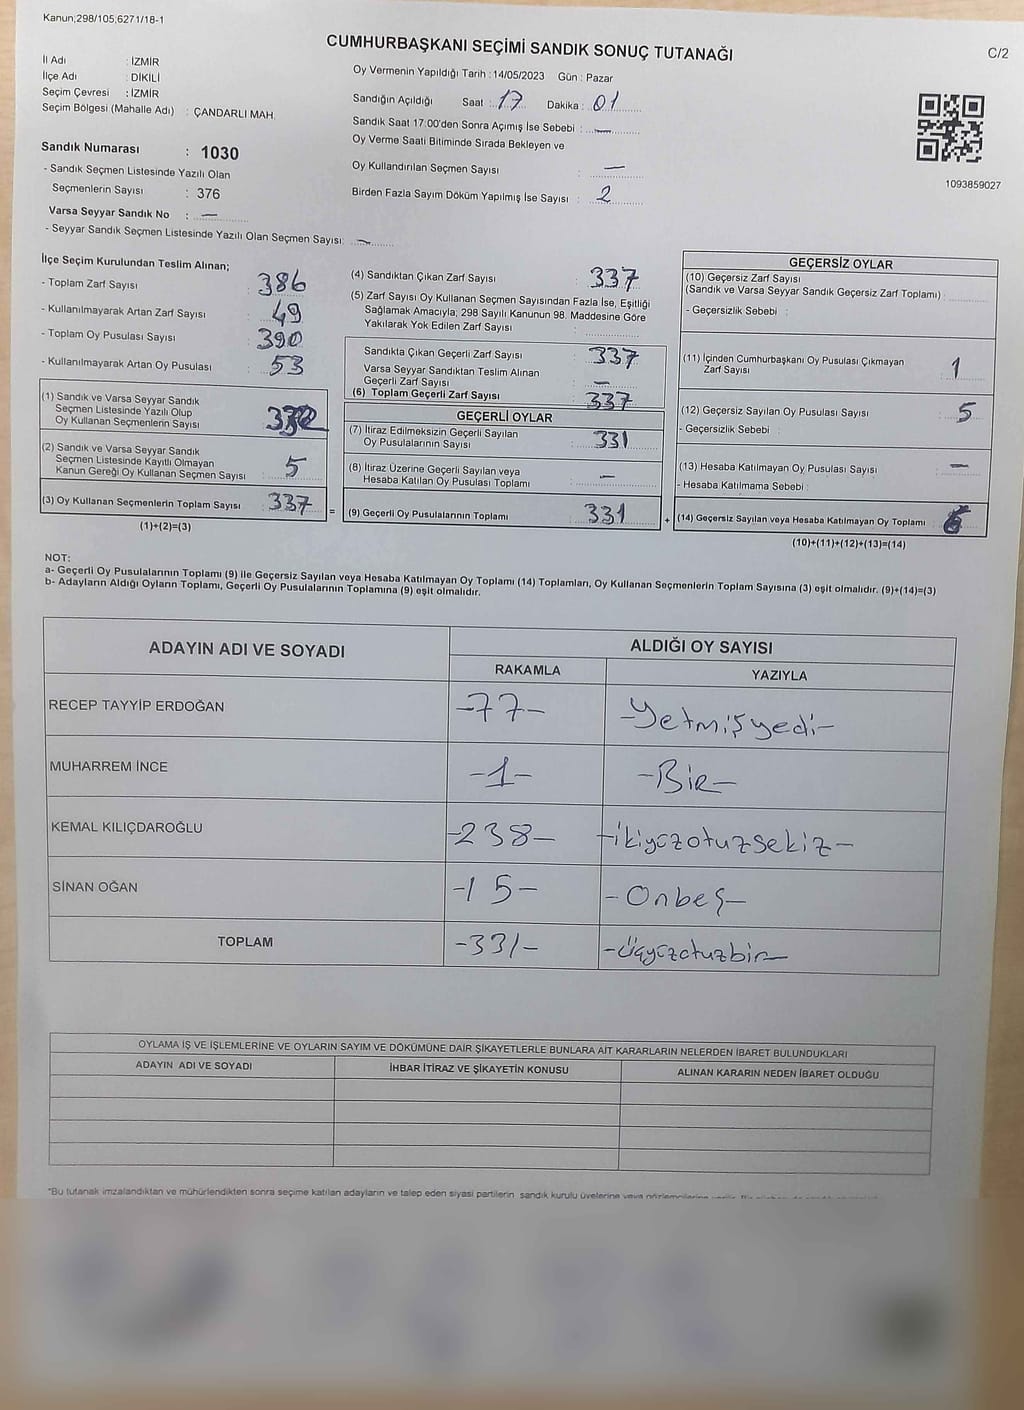 Kanun;298/105,6271/18-1
CUMHURBAŞKANI SEÇİMİ SANDIK SONUÇ TUTANAĞI
C/2
İl Adı : İZMİR
İlçe Adı : DİKİLİ
Seçim Çevresi : İZMİR
Seçim Bölgesi (Mahalle Adı) : ÇANDARLI MAH.
Oy Vermenin Yapıldığı Tarih : 14/05/2023 Gün : Pazar
Sandığın Açıldığı Saat : 17 Dakika : 01
Sandık Saat 17:00'den Sonra Açımış İse Sebebi : —
Oy Verme Saati Bitiminde Sırada Bekleyen ve
Oy Kullandırılan Seçmen Sayısı : —
Birden Fazla Sayım Döküm Yapılmış İse Sayısı : 2
1093859027
Sandık Numarası : 1030
- Sandık Seçmen Listesinde Yazılı Olan
Seçmenlerin Sayısı : 376
Varsa Seyyar Sandık No : —
- Seyyar Sandık Seçmen Listesinde Yazılı Olan Seçmen Sayısı: —
İlçe Seçim Kurulundan Teslim Alınan;
- Toplam Zarf Sayısı : 386
- Kullanılmayarak Artan Zarf Sayısı : 49
- Toplam Oy Pusulası Sayısı : 390
- Kullanılmayarak Artan Oy Pusulası : 53
(1) Sandık ve Varsa Seyyar Sandık
Seçmen Listesinde Yazılı Olup
Oy Kullanan Seçmenlerin Sayısı : 332
(2) Sandık ve Varsa Seyyar Sandık
Seçmen Listesinde Kayıtlı Olmayan
Kanun Gereği Oy Kullanan Seçmen Sayısı : 5
(3) Oy Kullanan Seçmenlerin Toplam Sayısı : 337 =
(1)+(2)=(3)
(4) Sandıktan Çıkan Zarf Sayısı : 337
(5) Zarf Sayısı Oy Kullanan Seçmen Sayısından Fazla İse, Eşitliği
Sağlamak Amacıyla; 298 Sayılı Kanunun 98. Maddesine Göre
Yakılarak Yok Edilen Zarf Sayısı :
Sandıkta Çıkan Geçerli Zarf Sayısı : 337
Varsa Seyyar Sandıktan Teslim Alınan
Geçerli Zarf Sayısı : —
(6) Toplam Geçerli Zarf Sayısı : 337
GEÇERLİ OYLAR
(7) İtiraz Edilmeksizin Geçerli Sayılan
Oy Pusulalarının Sayısı : 331
(8) İtiraz Üzerine Geçerli Sayılan veya
Hesaba Katılan Oy Pusulası Toplamı : —
(9) Geçerli Oy Pusulalarının Toplamı : 331 +
GEÇERSİZ OYLAR
(10) Geçersiz Zarf Sayısı
(Sandık ve Varsa Seyyar Sandık Geçersiz Zarf Toplamı) :
- Geçersizlik Sebebi :
(11) İçinden Cumhurbaşkanı Oy Pusulası Çıkmayan
Zarf Sayısı : 1
(12) Geçersiz Sayılan Oy Pusulası Sayısı : 5
- Geçersizlik Sebebi :
(13) Hesaba Katılmayan Oy Pusulası Sayısı : —
- Hesaba Katılmama Sebebi :
(14) Geçersiz Sayılan veya Hesaba Katılmayan Oy Toplamı : 6
(10)+(11)+(12)+(13)=(14)
NOT:
a- Geçerli Oy Pusulalarının Toplamı (9) ile Geçersiz Sayılan veya Hesaba Katılmayan Oy Toplamı (14) Toplamları, Oy Kullanan Seçmenlerin Toplam Sayısına (3) eşit olmalıdır. (9)+(14)=(3)
b- Adayların Aldığı Oyların Toplamı, Geçerli Oy Pusulalarının Toplamına (9) eşit olmalıdır.
ADAYIN ADI VE SOYADI
ALDIĞI OY SAYISI
RAKAMLA YAZIYLA
RECEP TAYYİP ERDOĞAN -77- -Yetmişyedi-
MUHARREM İNCE -1- -Bir-
KEMAL KILIÇDAROĞLU -238- -ikiyüzotuzsekiz-
SİNAN OĞAN -15- -Onbeş-
TOPLAM -331- -üçyüzotuzbir-
OYLAMA İŞ VE İŞLEMLERİNE VE OYLARIN SAYIM VE DÖKÜMÜNE DAİR ŞİKAYETLERLE BUNLARA AİT KARARLARIN NELERDEN İBARET BULUNDUKLARI
ADAYIN ADI VE SOYADI İHBAR İTİRAZ VE ŞİKAYETİN KONUSU ALINAN KARARIN NEDEN İBARET OLDUĞU
*Bu tutanak imzalandıktan ve mühürlendikten sonra seçime katılan adayların ve talep eden siyasi partilerin sandık kurulu üyelerine veya